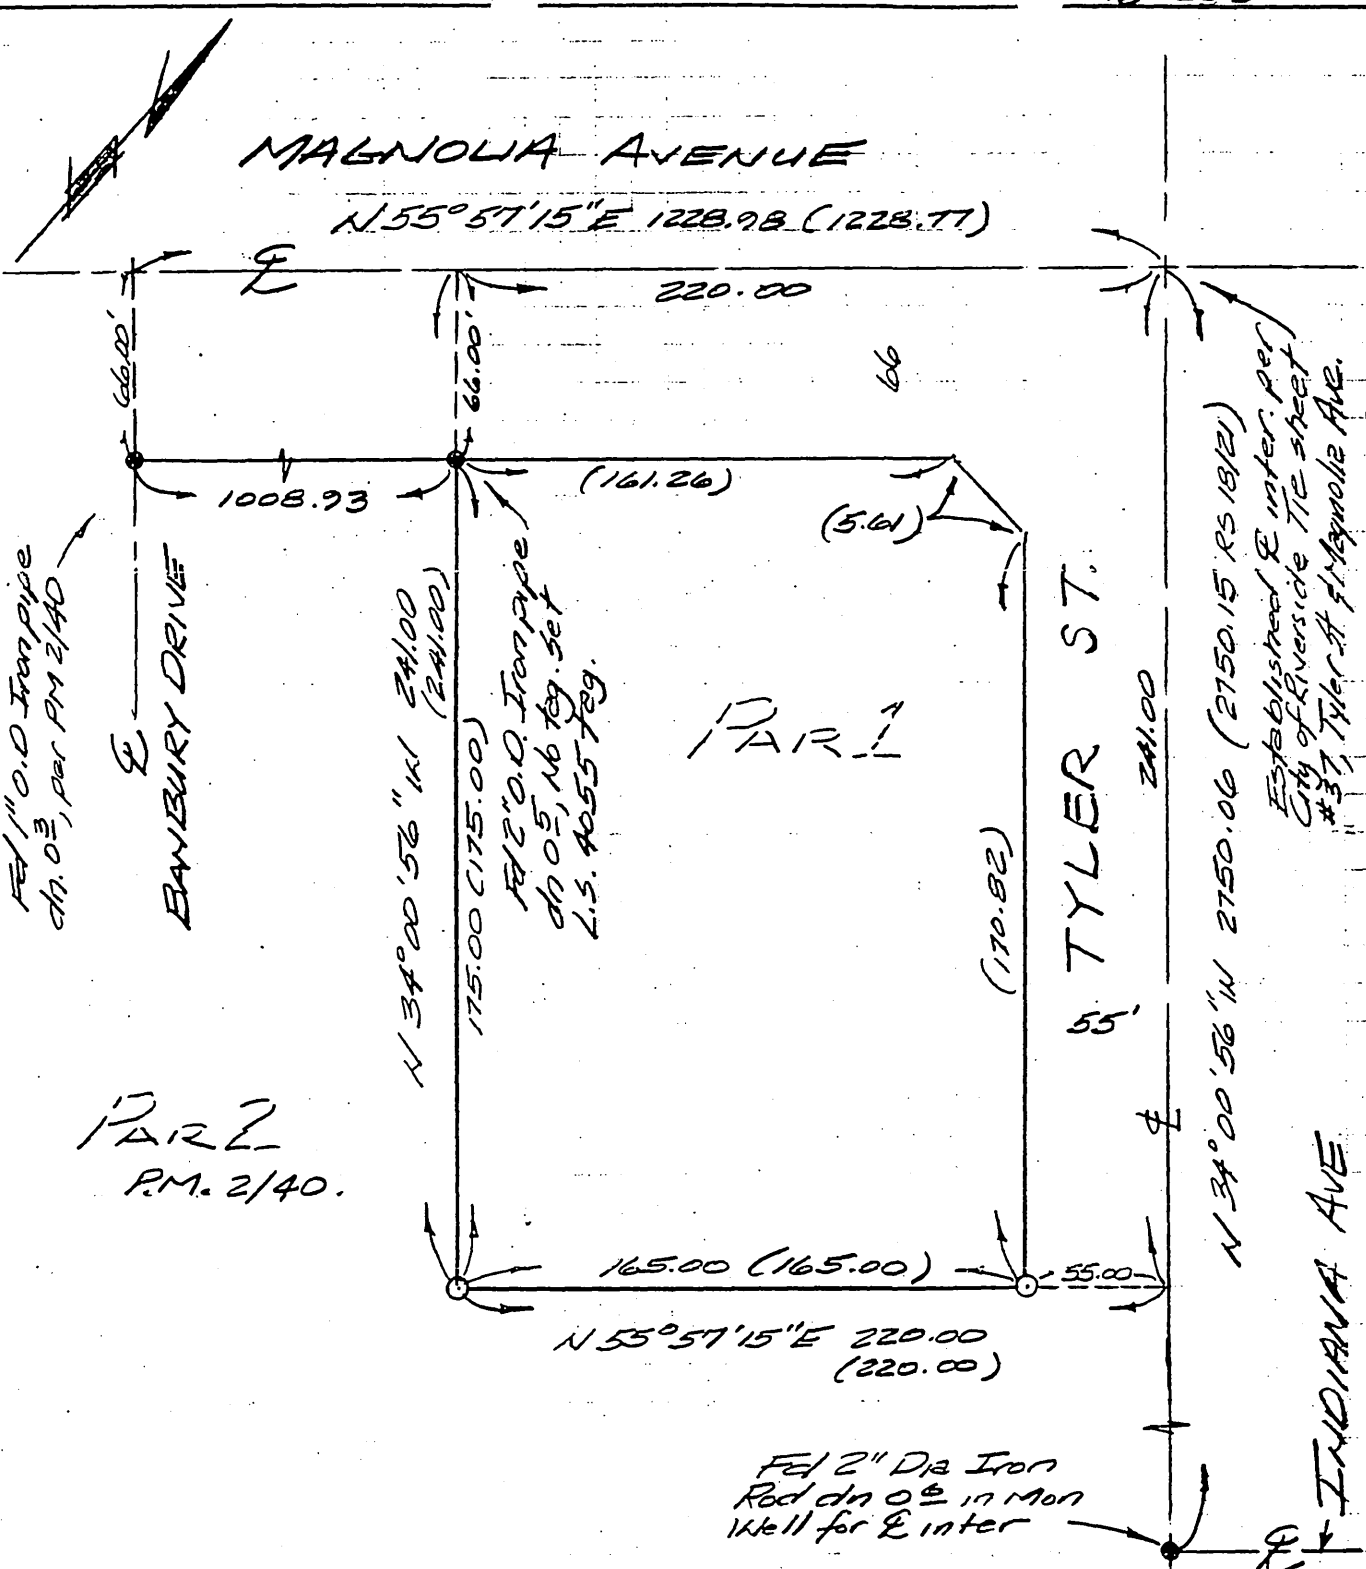 MAGNOLIA AVENUE
N 55° 57' 15" E 1228.98 (1228.77)
℄
220.00
66.00'
66.00'
66
1008.93
(161.26)
(5.61)
Fd 1" O.D Iron pipe
dn. 0.3, per PM 2/40
℄
BANBURY DRIVE
N 34° 00' 56" W 241.00
(241.00)
175.00 (175.00)
Fd 2" O.D. Iron pipe
dn 0.5, No tag. Set
L.S. 4055 tag.
PAR 1
(170.82)
TYLER ST.
55'
241.00
℄
N 34° 00' 56" W 2750.06 (2750.15 RS 18/21)
Established ℄ inter. per
City of Riverside Tie sheet
#37, Tyler St & Magnolia Ave.
PAR 2
P.M. 2/40.
165.00 (165.00)
55.00
N 55° 57' 15" E 220.00
(220.00)
Fd 2" Dia Iron
Rod dn 0.6 in Mon
Well for ℄ inter
INDIANA AVE
℄